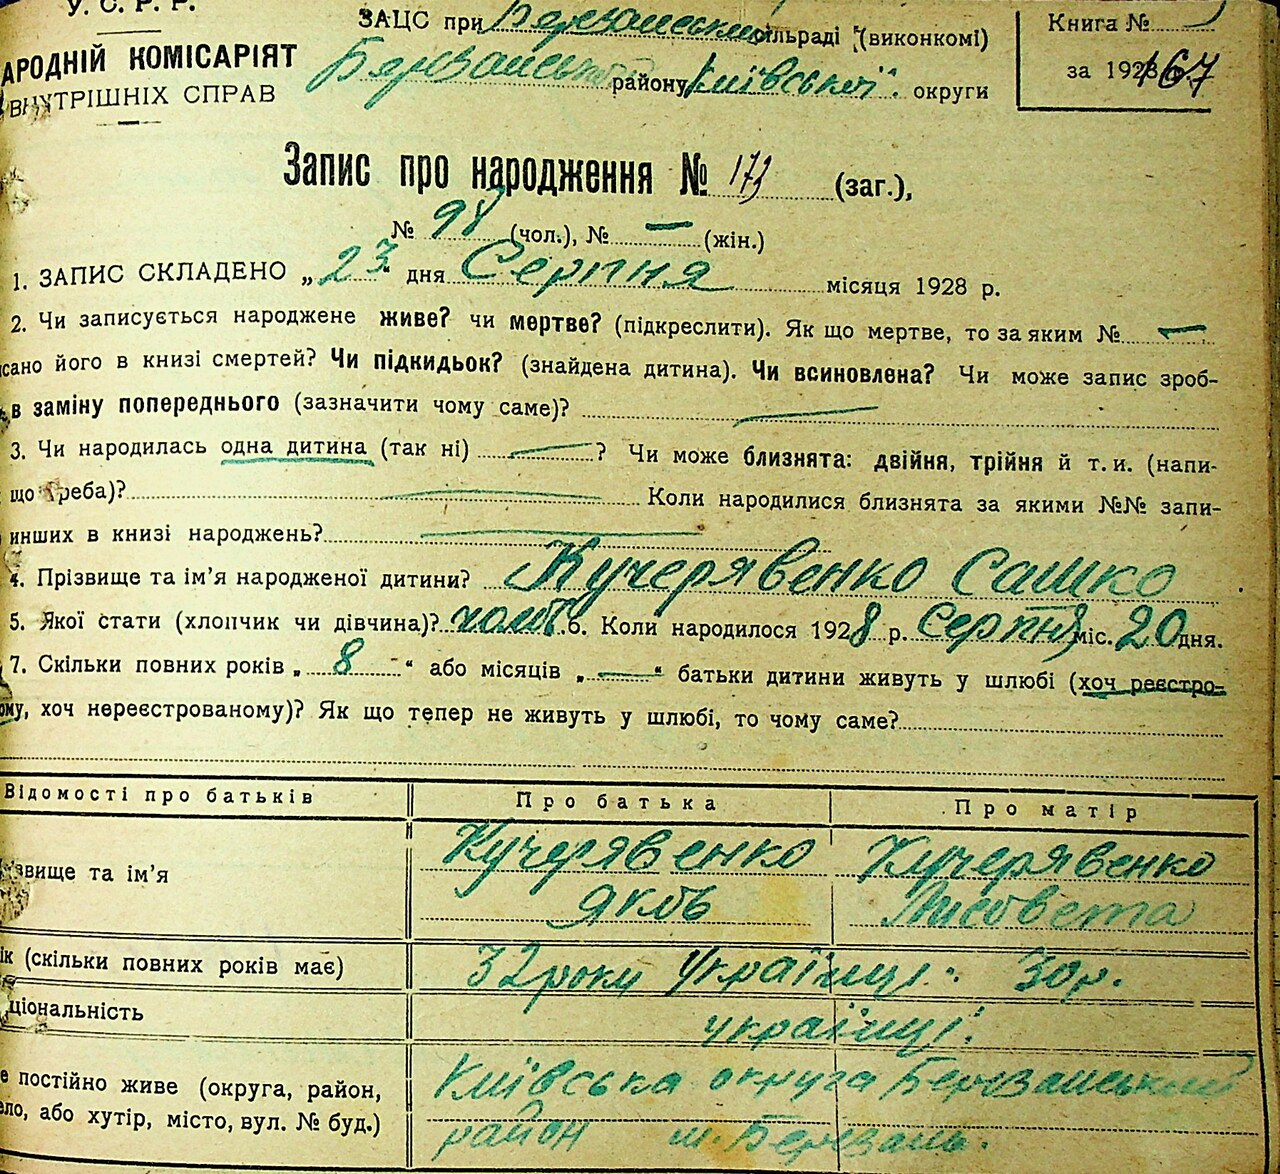 У. С. Р. Р.
АРОДНІЙ КОМІСАРІЯТ
ВНУТРІШНІХ СПРАВ
ЗАЦС при Березанській сільраді (виконкомі)
Березанського району Київської округи
Книга №
за 1928 р. 167
Запис про народження № 173 (заг.),
№ 98 (чол.), № — (жін.)
1. ЗАПИС СКЛАДЕНО „23“ дня Серпня місяця 1928 р.
2. Чи записується народжене живе? чи мертве? (підкреслити). Як що мертве, то за яким № —
сано його в книзі смертей? Чи підкидьок? (знайдена дитина). Чи всиновлена? Чи може запис зроб-
в заміну попереднього (зазначити чому саме)? —
3. Чи народилась одна дитина (так ні) — ? Чи може близнята: двійня, трійня й т. и. (напи-
що треба)? — Коли народилися близнята за якими №№ запи-
инших в книзі народжень? —
4. Прізвище та ім’я народженої дитини? Кучерявенко Сашко
5. Якої стати (хлопчик чи дівчина)? 6. Коли народилося 1928 р. Серпня міс. 20 дня.
7. Скільки повних років „ 8 “ або місяців „ — “ батьки дитини живуть у шлюбі (хоч реєстро-
ому, хоч нереєстрованому)? Як що тепер не живуть у шлюбі, то чому саме?
Відомості про батьків Про батька Про матір
звище та ім’я Кучерявенко Якоб Кучерявенко Лисовета
ік (скільки повних років має) 32 роки Українці. 30 р.
ціональність українці.
е постійно живе (округа, район, Київська округа Березанський
ело, або хутір, місто, вул. № буд.) район м. Березань.